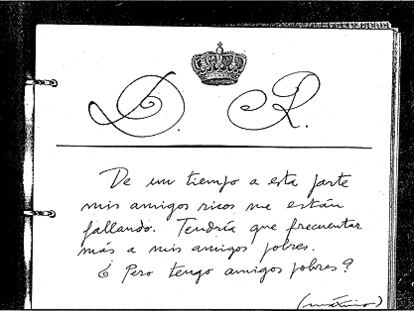 D. R.
De un tiempo a esta parte
mis amigos ricos me están
fallando. Tendría que frecuentar
más a mis amigos pobres.
¿Pero tengo amigos pobres?
(máximo)